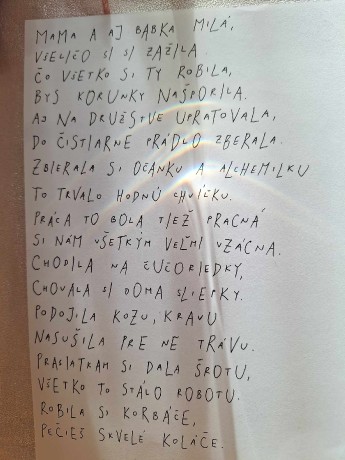 MAMA A AJ BABKA MILÁ,
VŠELIČO SI SI ZAŽILA.
ČO VŠETKO SI TY ROBILA,
BYS KORUNKY NAŠPORILA.
AJ NA DRUŽSTVE UPRATOVALA,
DO ČISTIARNE PRÁDLO ZBERALA.
ZBIERALA SI OČANKU A ALCHEMILKU
TO TRVALO HODNÚ CHVÍĽKU.
PRÁCA TO BOLA TIEŽ PRACNÁ
SI NÁM VŠETKÝM VEĽMI VZÁCNA.
CHODILA NA ČUČORIEDKY,
CHOVALA SI DOMA SLIEPKY.
PODOJILA KOZU, KRAVU
NASUŠILA PRE NE TRÁVU.
PRASIATKAM SI DALA ŠROTU,
VŠETKO TO STÁLO ROBOTU.
ROBILA SI KORBÁČE,
PEČIEŠ SKVELÉ KOLÁČE.